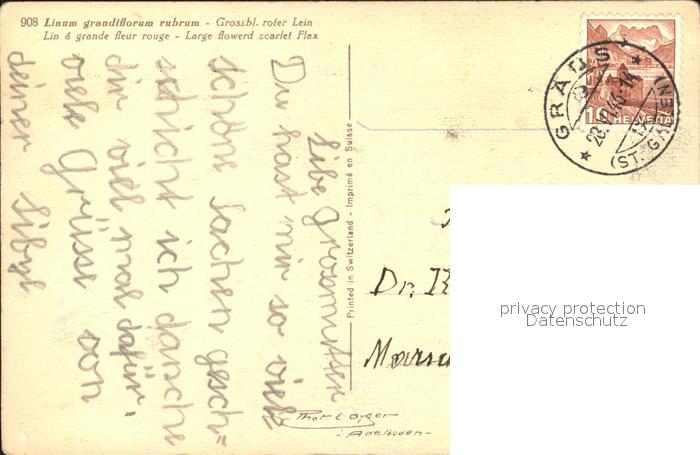 908 Linum grandiflorum rubrum - Grossbl. roter Lein
Lin á grande fleur rouge - Large flowerd scarlet Flax
Libe Grosmutter
Du hast mir so viele
schöne Sachen gesch=
schickt ich danke
dir viel mal dafür.
viele Grüsse von
deiner Sibyl
Printed in Switzerland - Imprimé en Suisse
Thor E. Gyger
- Adelboden -
GRABS
(ST. GALLEN)
10 HELVETIA
Dr.
privacy protection
Datenschutz